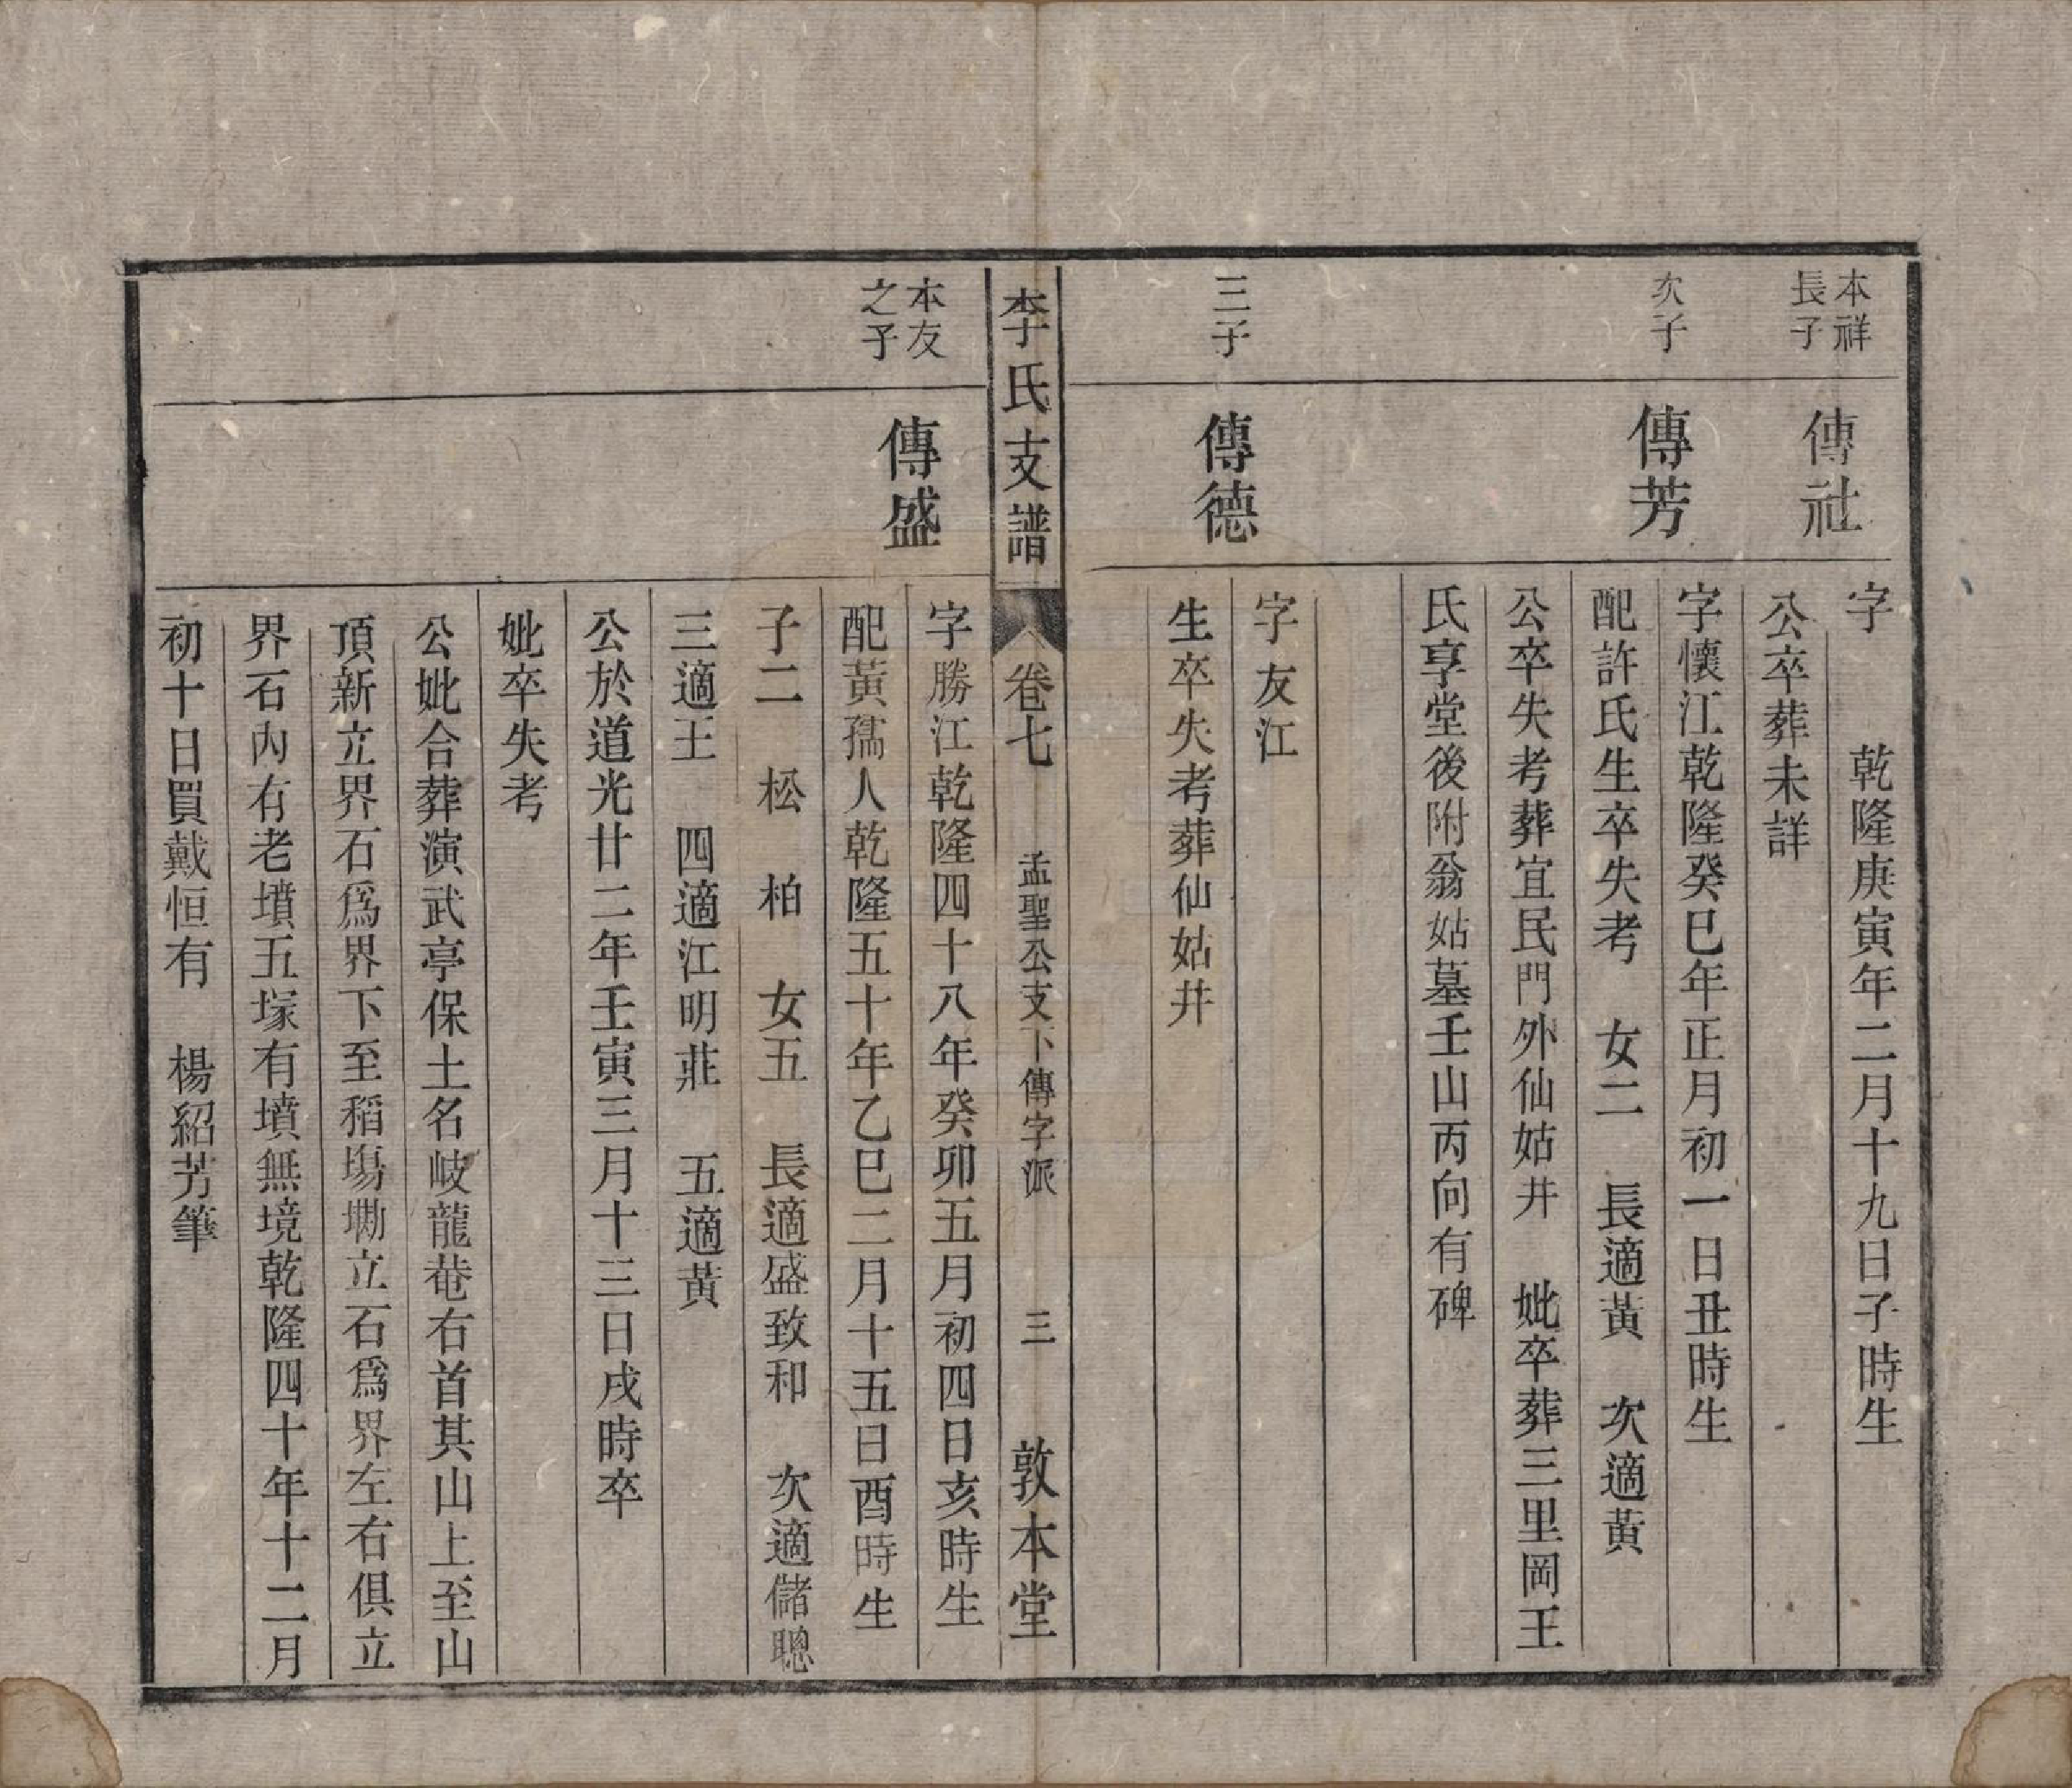 本祥
長子
傳社
字　　乾隆庚寅年二月十九日子時生
公卒葬未詳
次子
傳芳
字懷江乾隆癸巳年正月初一日丑時生
配許氏生卒失考　女二　長適黃　次適黃
公卒失考葬宜民門外仙姑井　妣卒葬三里岡王
氏享堂後附翁姑墓壬山丙向有碑
三子
傳德
字友江
生卒失考葬仙姑井
李氏支譜
卷七
孟聖公支下傳字派
三
敦本堂
本友
之子
傳盛
字勝江乾隆四十八年癸卯五月初四日亥時生
配黃孺人乾隆五十年乙巳二月十五日酉時生
子二　松　柏　女五　長適盛致和　次適儲聰
三適王　四適江明莊　五適黃
公於道光廿二年壬寅三月十三日戌時卒
妣卒失考
公妣合葬演武亭保土名岐龍菴右首其山上至山
頂新立界石爲界下至稻塲墈立石爲界左右俱立
界石內有老墳五塚有墳無境乾隆四十年十二月
初十日買戴恒有　楊紹芳筆